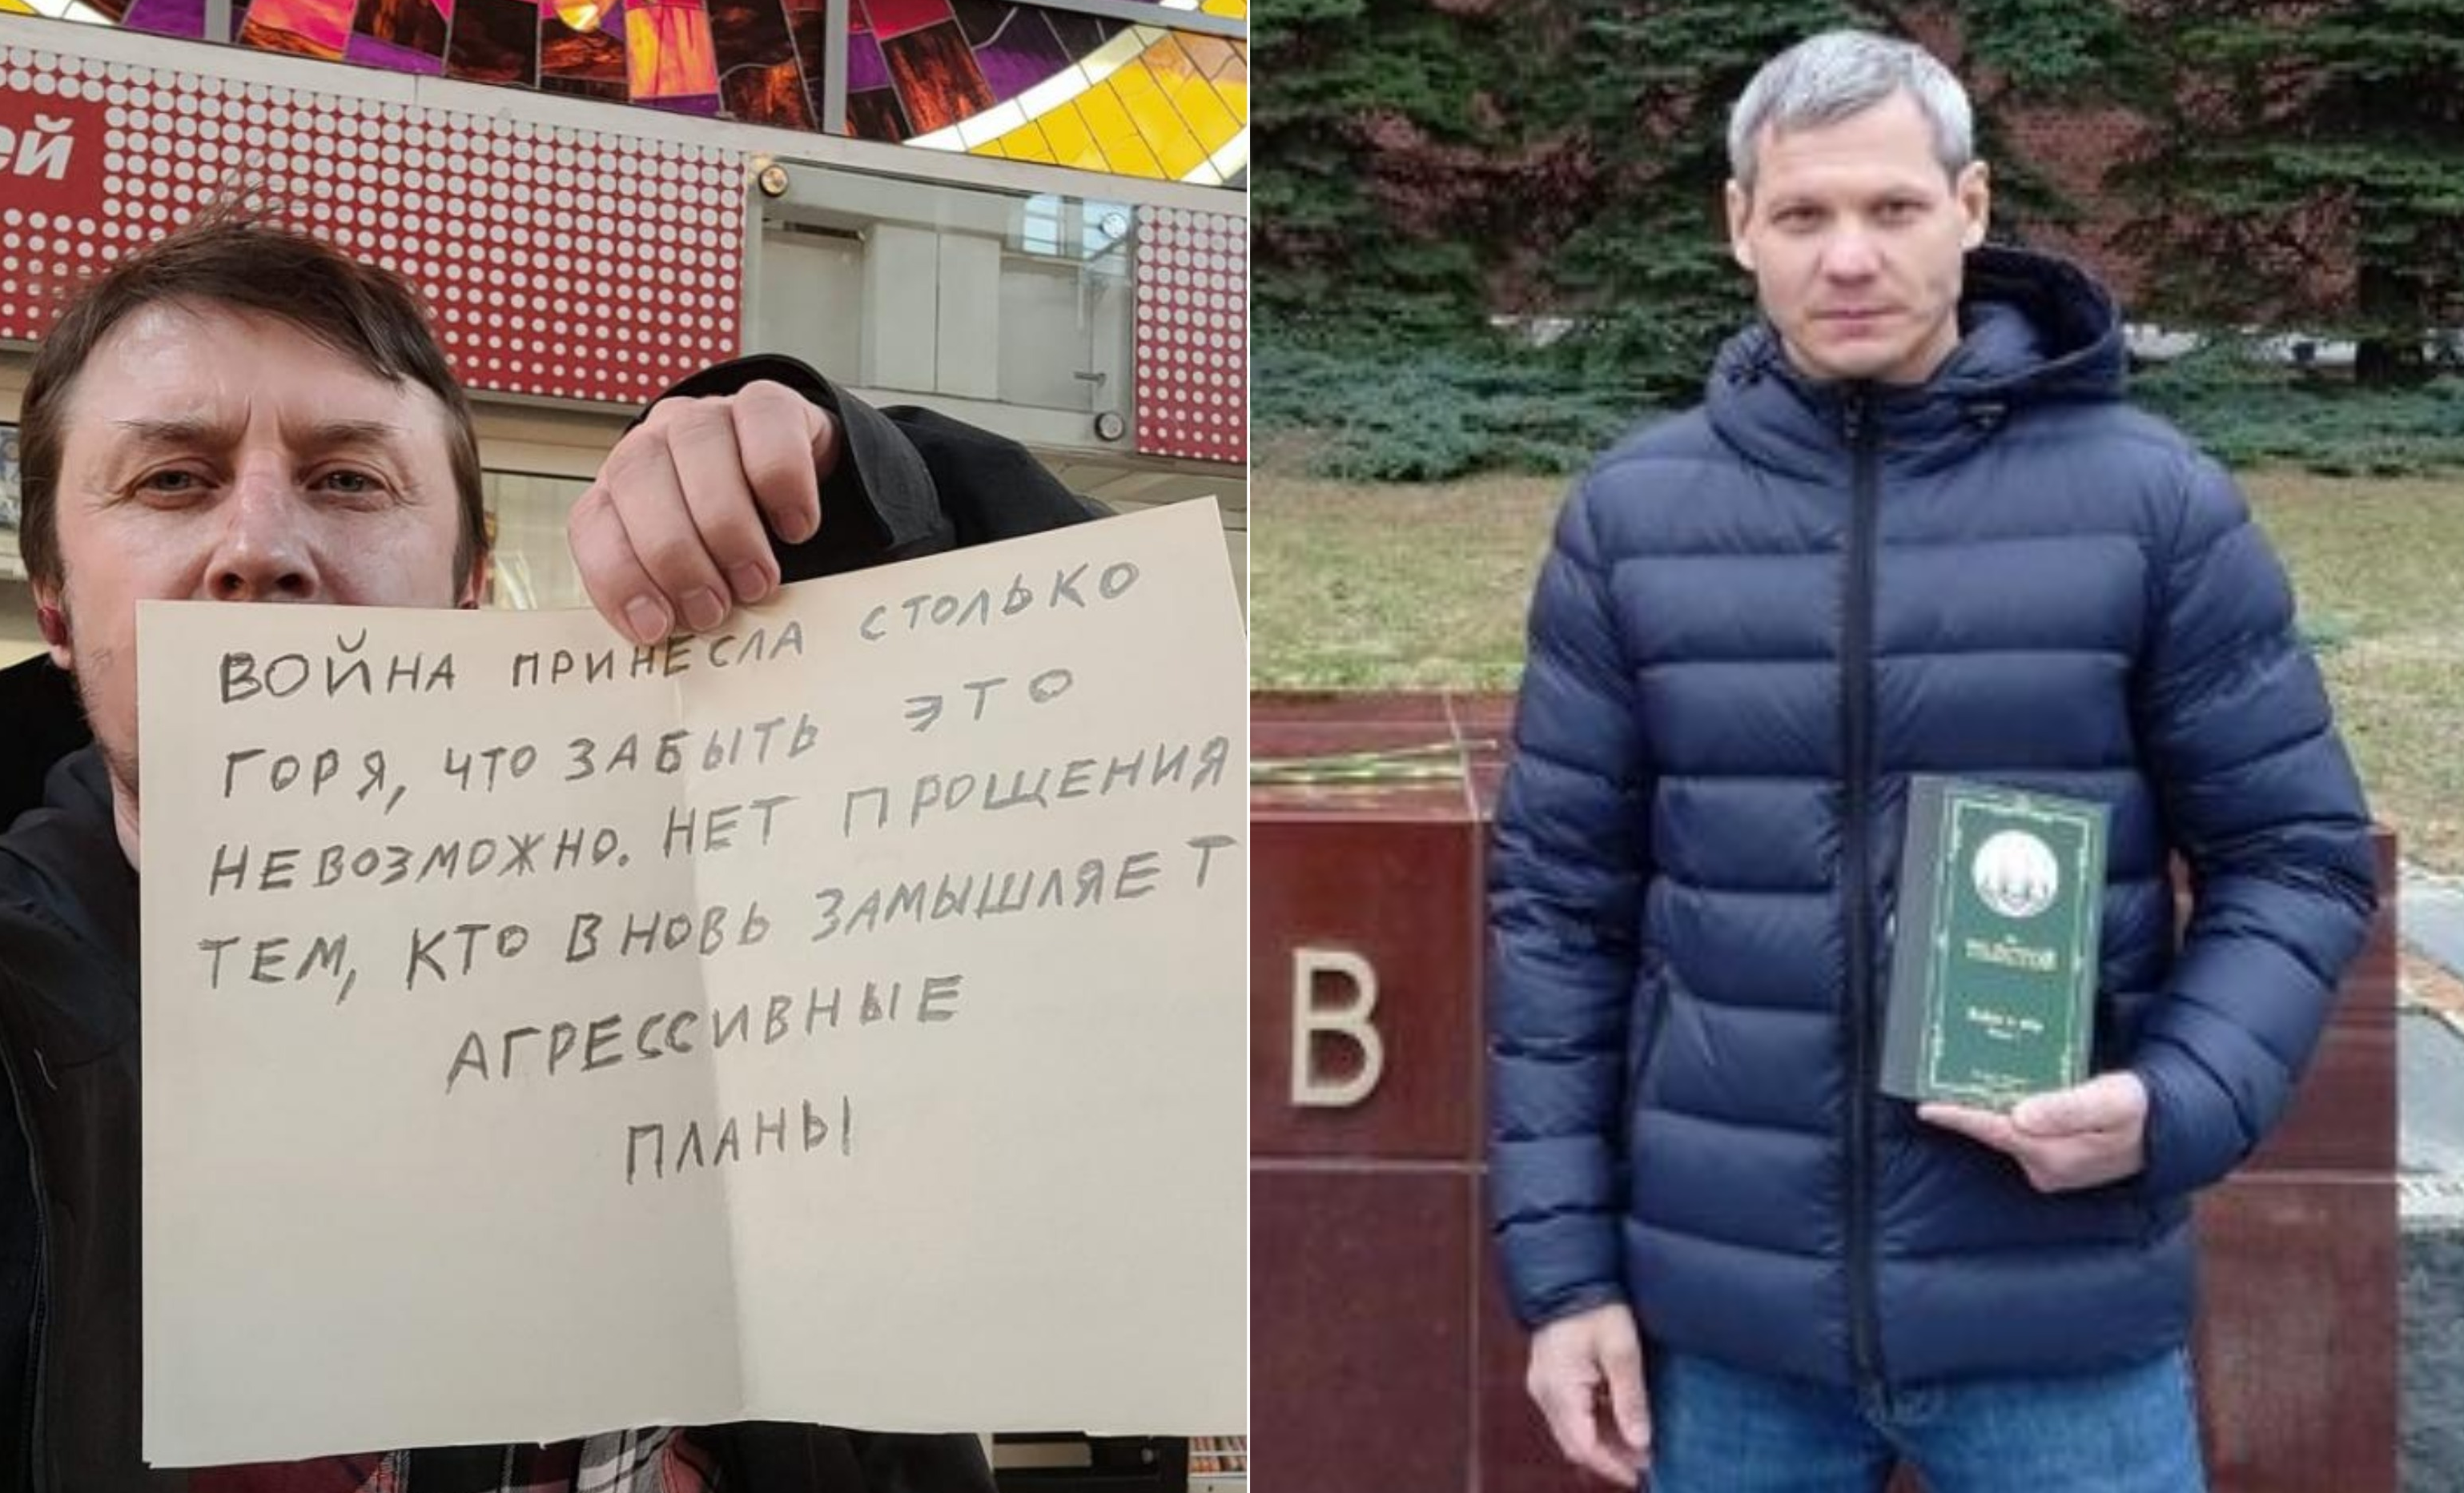 ей
ВОЙНА ПРИНЕСЛА СТОЛЬКО
ГОРЯ, ЧТО ЗАБЫТЬ ЭТО
НЕВОЗМОЖНО. НЕТ ПРОЩЕНИЯ
ТЕМ, КТО ВНОВЬ ЗАМЫШЛЯЕТ
АГРЕССИВНЫЕ
ПЛАНЫ
В
ТОЛСТОЙ
Война и мир